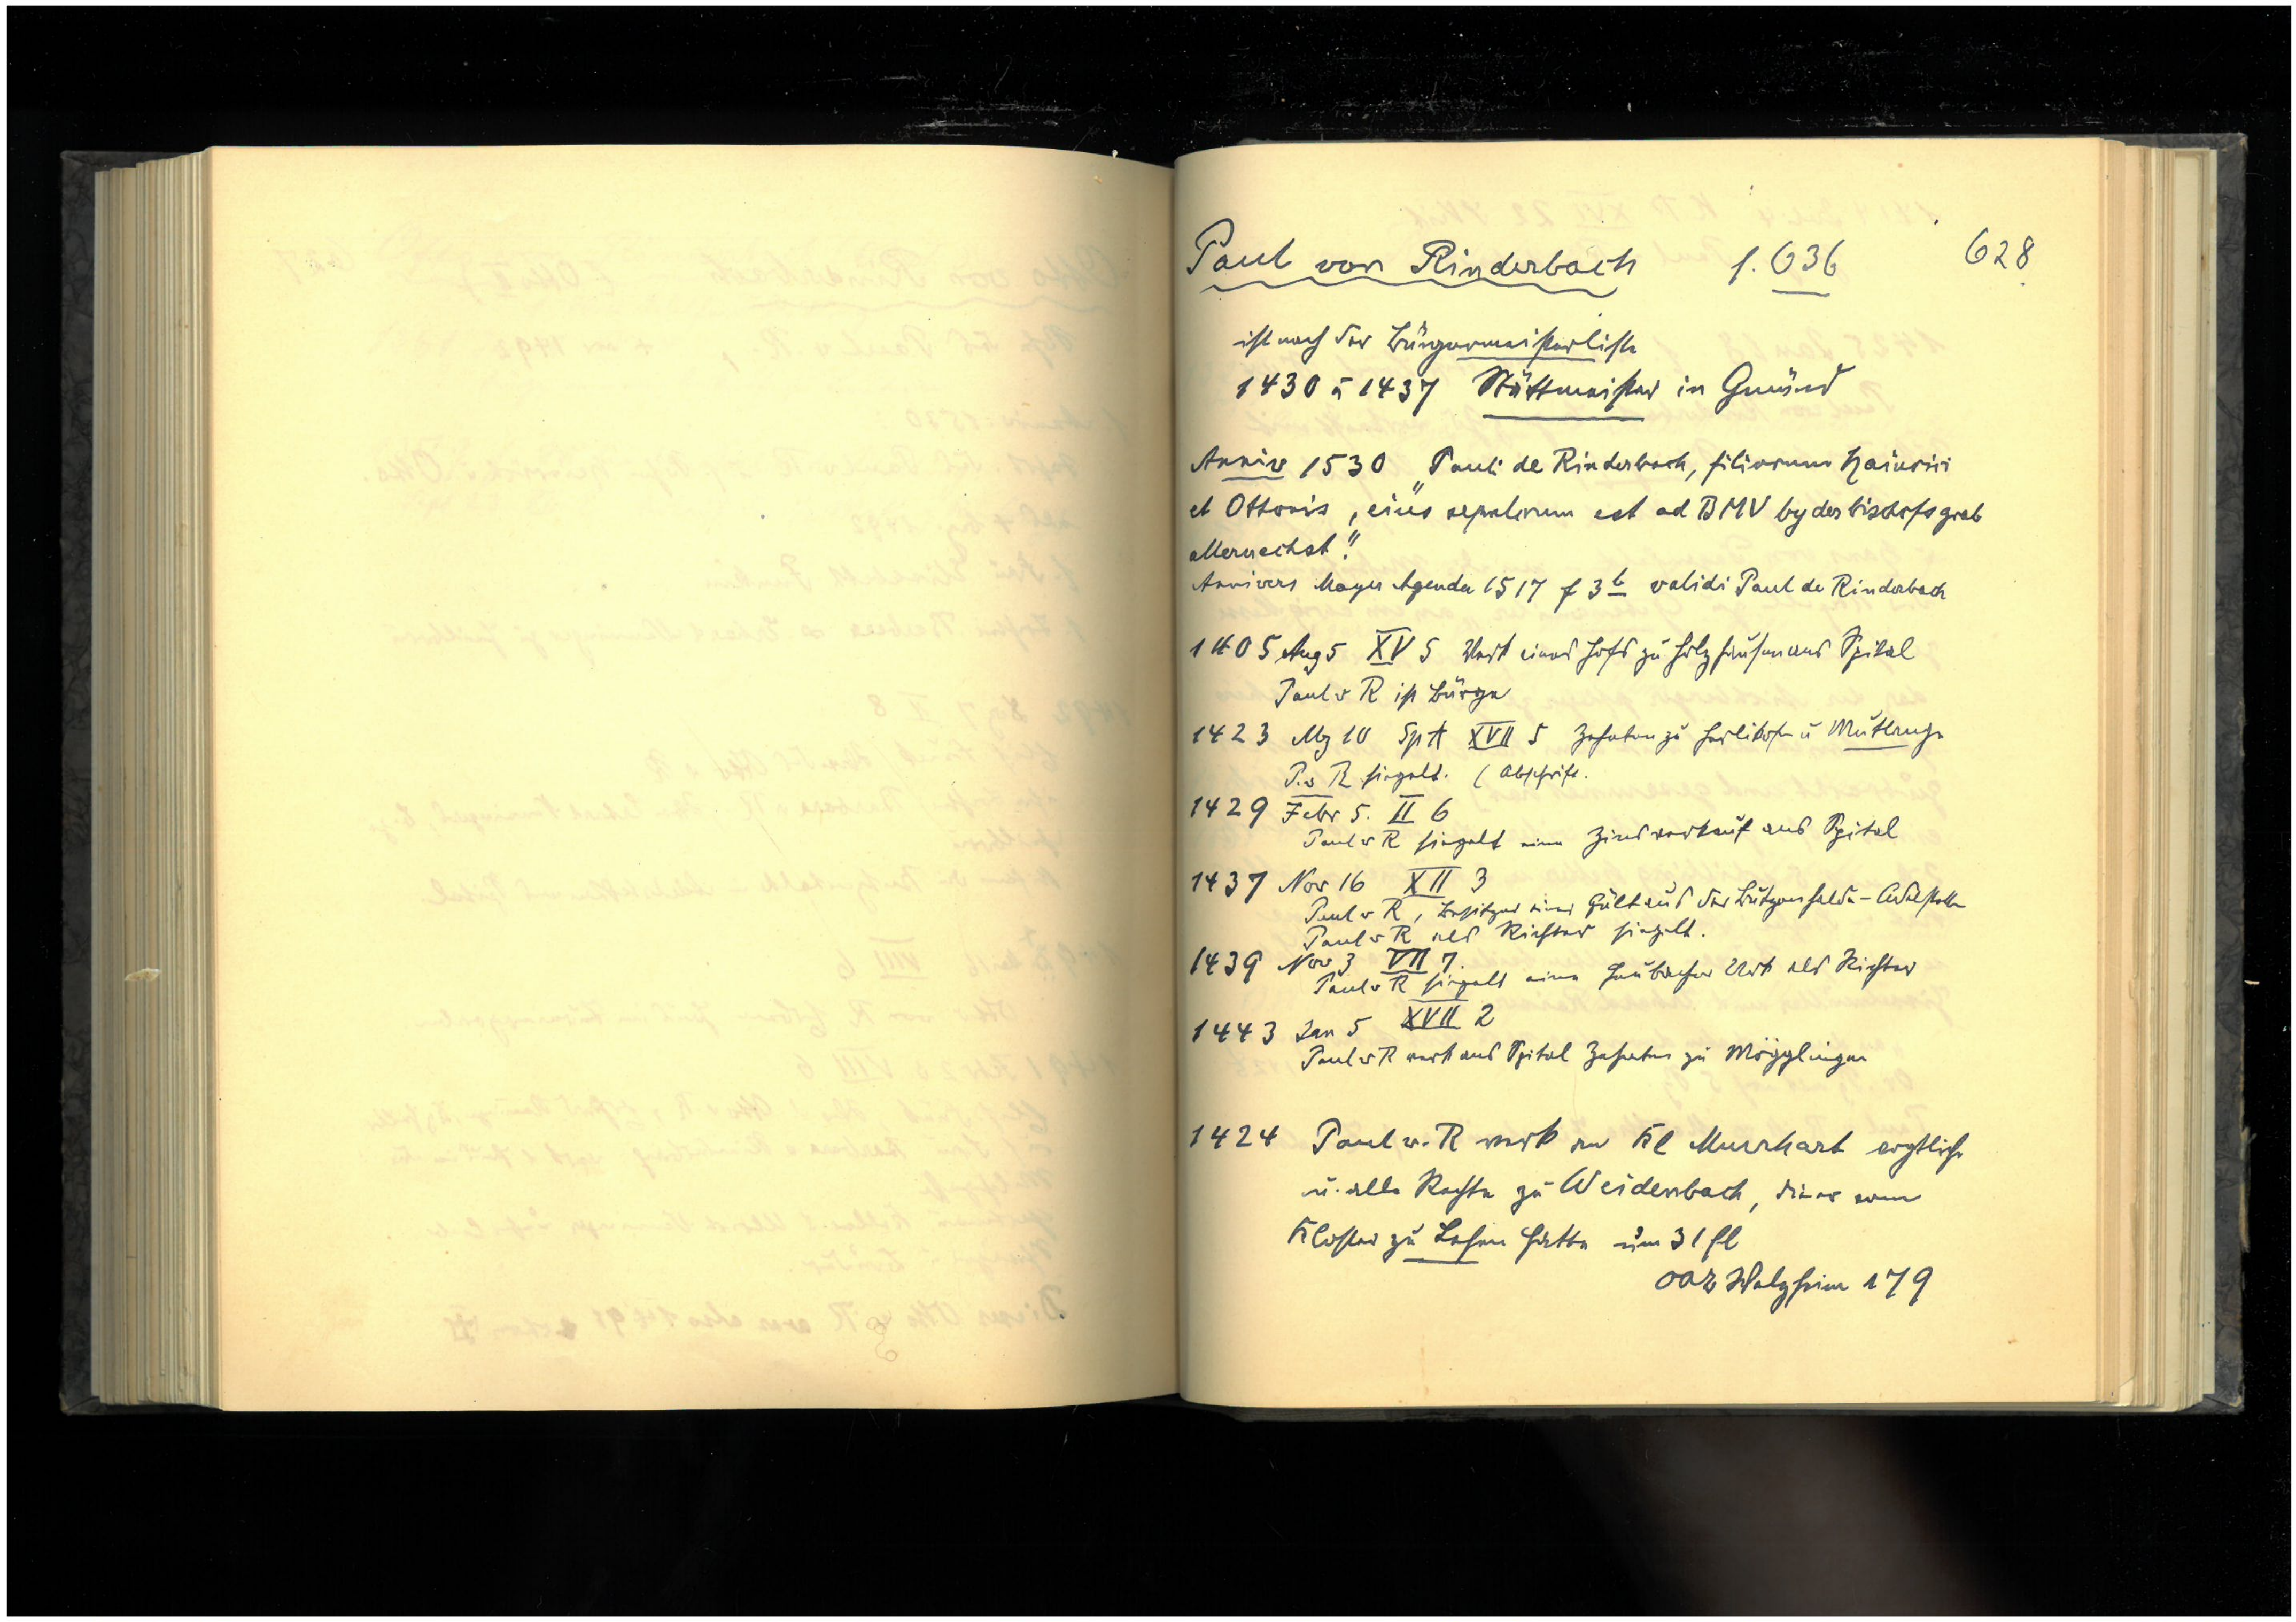 Paul von Rinderbach f. 636 628
ist nach der Bürgermeisterliste
1430 u 1437 Stättmeister in Gmünd
Anniv 1530 „Pauli de Rinderbach, filiorum Hainrici
et Ottonis, eius sepulcrum est ad BMV by des bischofs grab
allernechst."
Annivers Mayer Agenda 1517 f 3b validi Paul de Rinderbach
1405 Aug 5 XV 5 Verk eines Hofs zu Holzhausen ans Spital
Paul v R ist Bürge
1423 Mz 10 Sp A XVII 5 Zehnten zu Herlikofen u Mutlangen
P. v R siegelt. (Abschrift.
1429 Febr 5. II 6
Paul v R siegelt einen Zinsverkauf ans Spital
1437 Nov 16 XII 3
Paul v R, Besitzer einer Gült aus der
Paul v R als Richter siegelt.
1439 Nov 3 VII 7.
Paul v R siegelt eine Heubacher Urk als Richter
1443 Jan 5 XVII 2
Paul v R verk ans Spital Zehnten zu Mögglingen
1424 Paul v. R verk an Kl Murrhart
u. alle Rechte zu Weidenbach, die er vom
Kloster zu Lehen hatte um 31 fl
OAB Welzheim 179